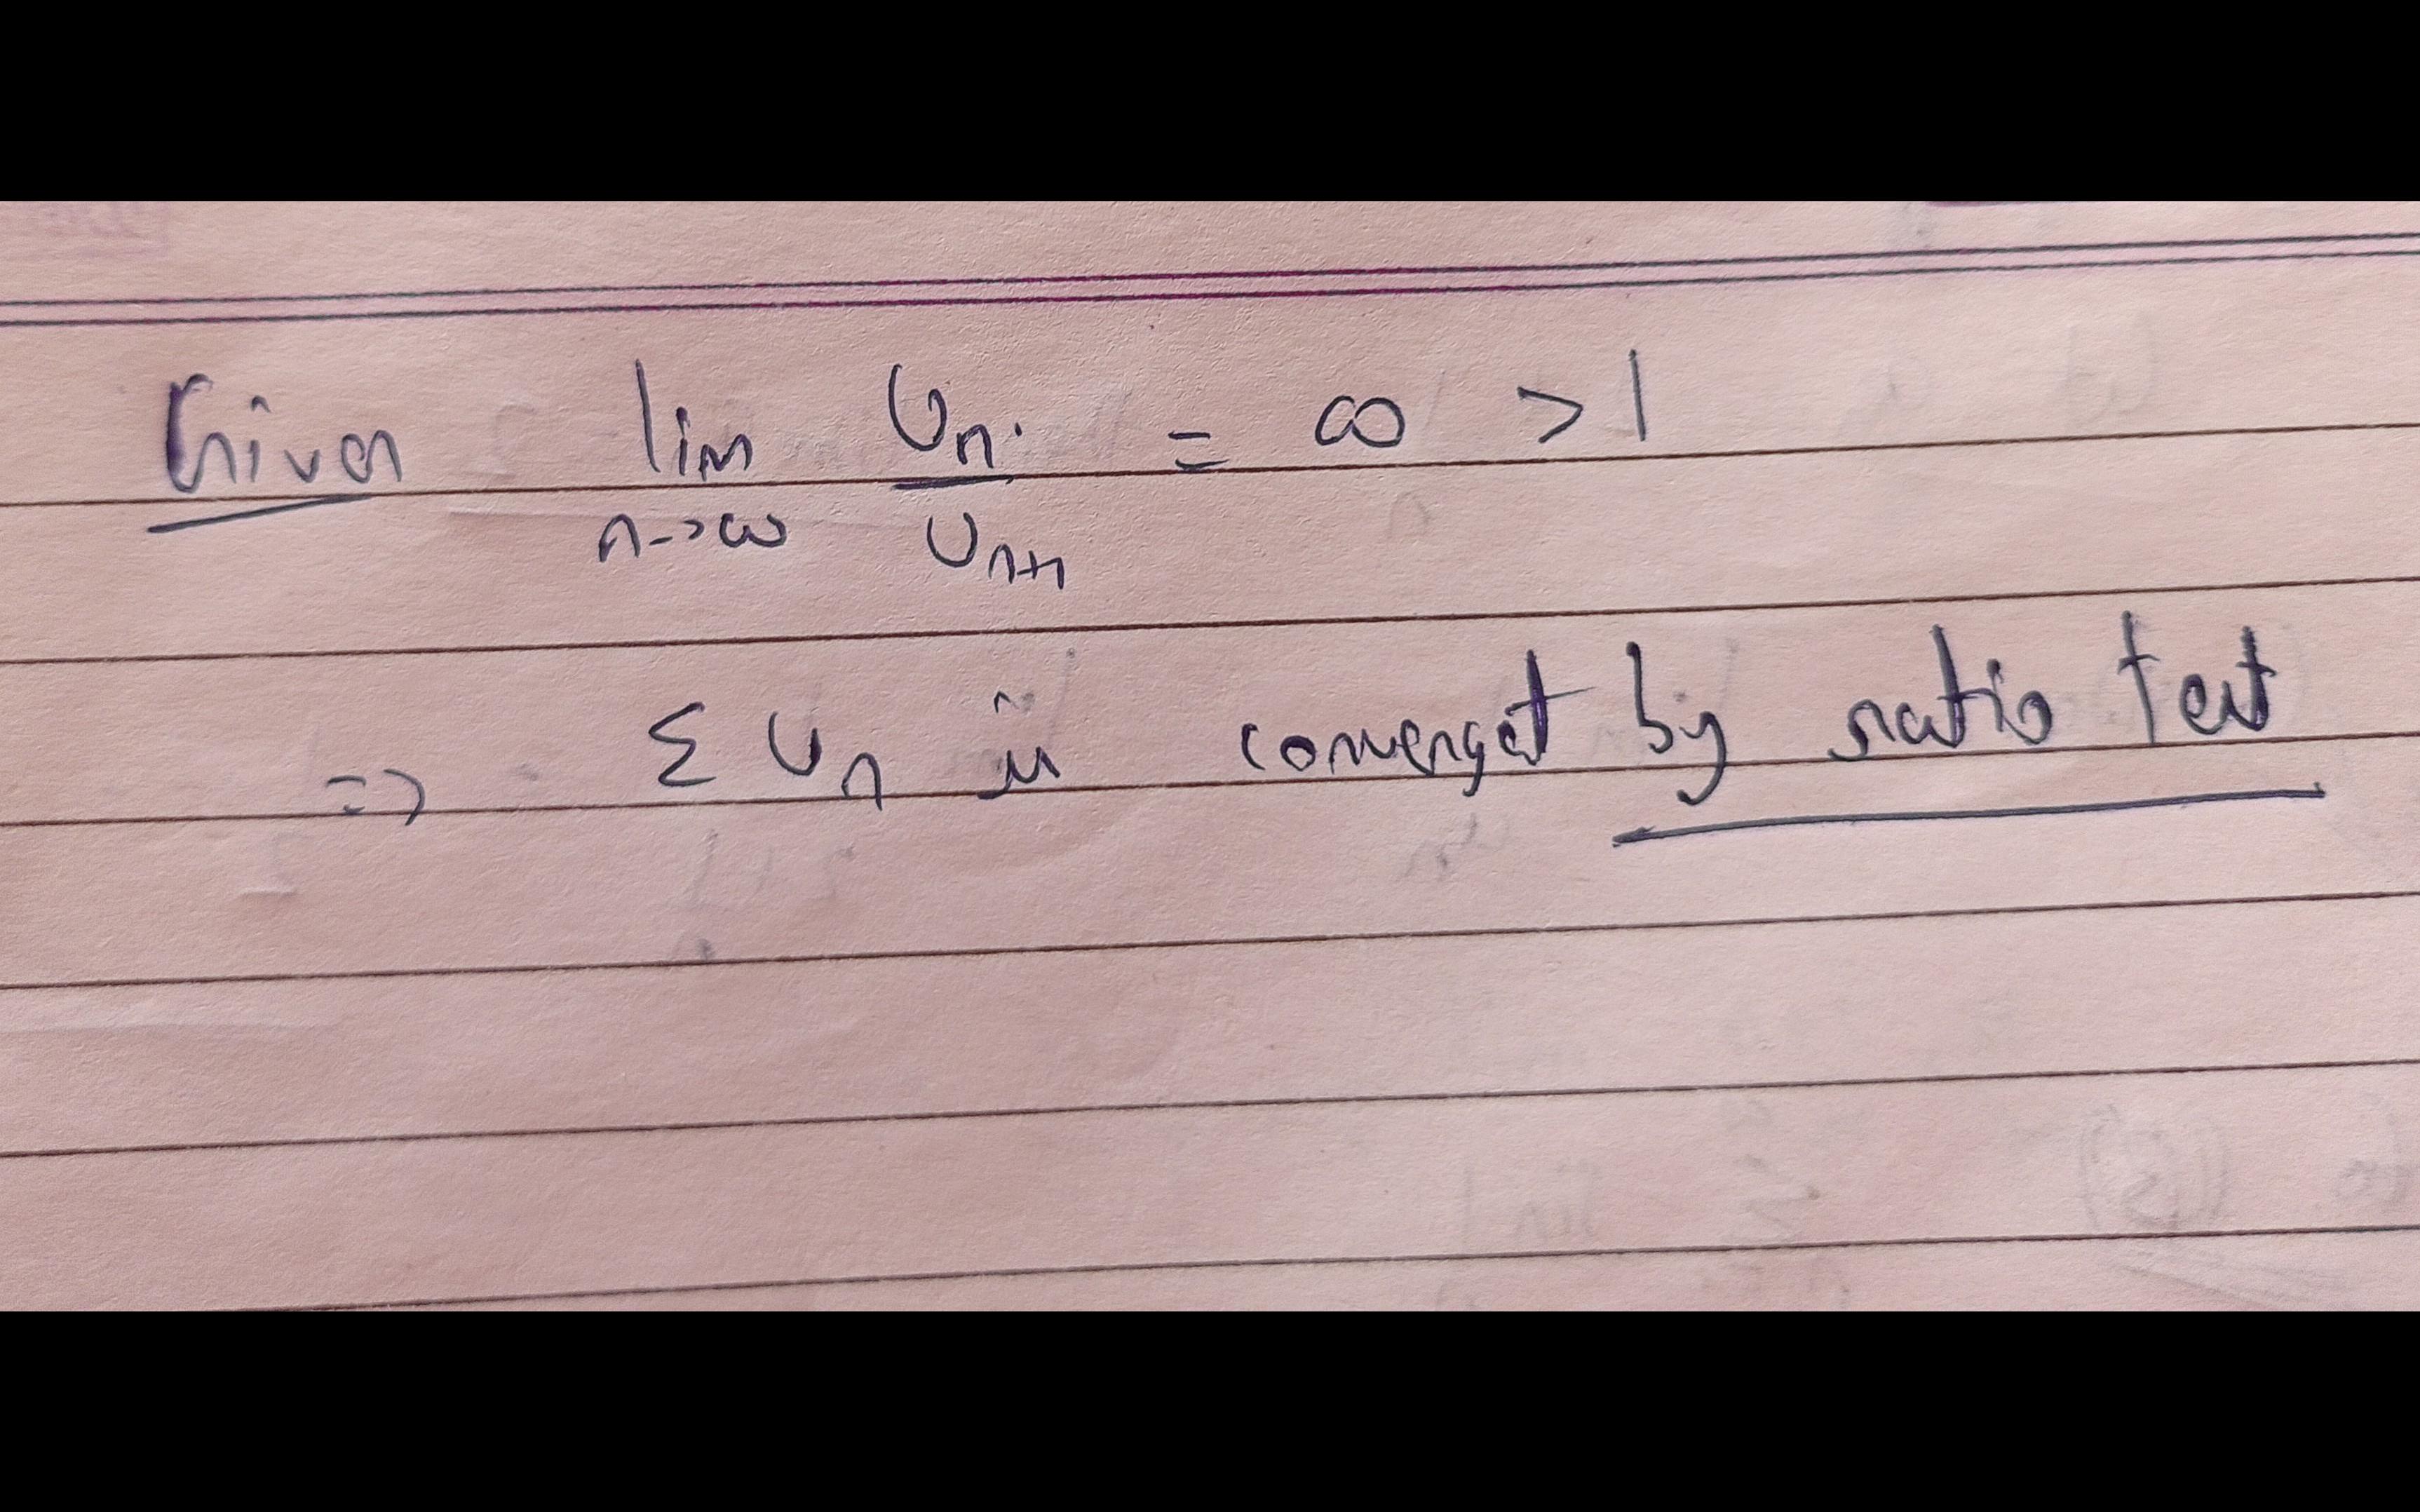 Given lim n→∞ Un / Un+1 = ∞ > 1
=> Σ Un is convergat by ratio test